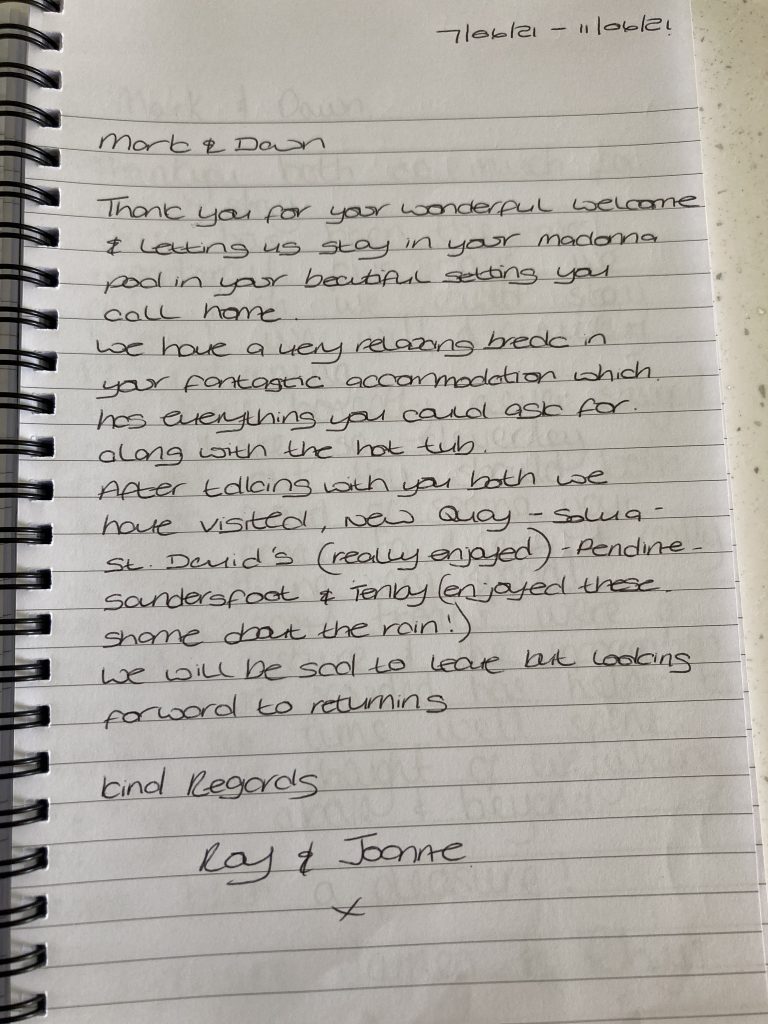 7/06/21 - 11/06/21
Mark & Dawn
Thank you for your wonderful welcome
& letting us stay in your madonna
pod in your beautiful setting you
call home.
We have a very relaxing break in
your fantastic accommodation which
has everything you could ask for.
along with the hot tub.
After talking with you both we
have visited, New Quay - Solva -
St. David's (really enjoyed) - Pendine -
Saundersfoot & Tenby (enjoyed these.
shame about the rain!)
We will be sad to leave but looking
forward to returning
Kind Regards
Ray & Joanne
x